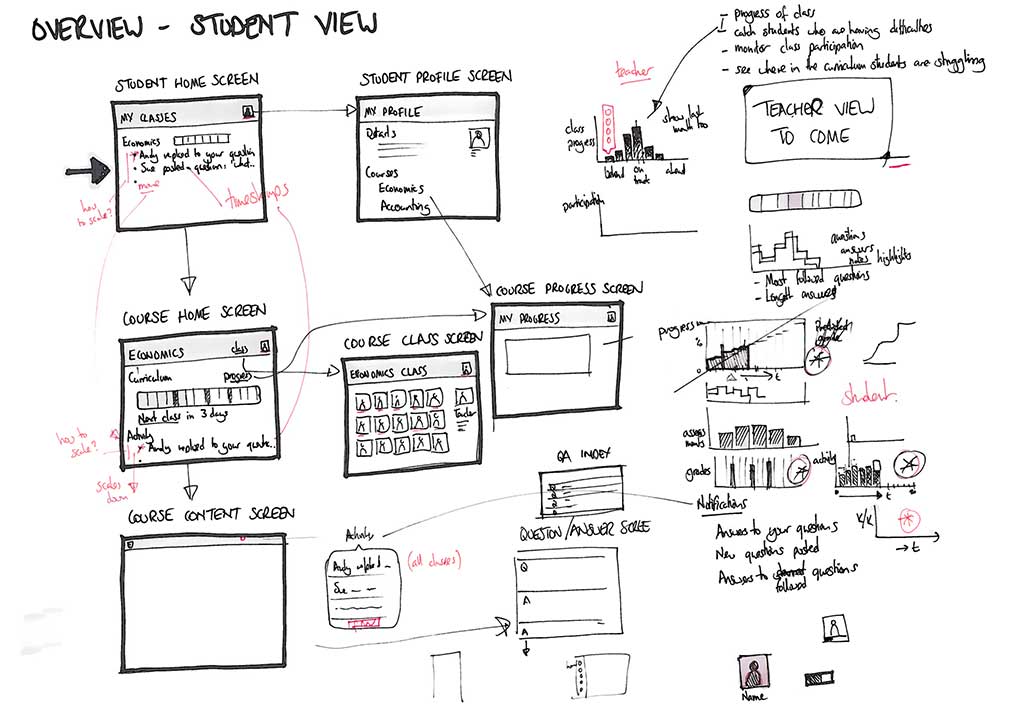 OVERVIEW - STUDENT VIEW
- progress of class
- catch students who are having difficulties
- monitor class participation
- see where in the curriculum students are struggling
STUDENT HOME SCREEN
MY CLASSES
Economics
* Andy replied to your question
• Sue posted a question: 'what..
• more
how to scale?
timestamps
STUDENT PROFILE SCREEN
MY PROFILE
Details
Courses
Economics
Accounting
teacher
class progress
show last month too
behind
on track
ahead
participation
TEACHER VIEW
TO COME
questions
answers
notes
highlights
- Most followed questions
- Longest answers
COURSE HOME SCREEN
ECONOMICS
class
Curriculum
Progress
Next class in 3 days
Activity
* Andy replied to your quest..
how to scale?
scales down
COURSE CLASS SCREEN
ECONOMICS CLASS
Teacher
COURSE PROGRESS SCREEN
MY PROGRESS
progress
%
0
t
Predicted grade
student
assessments
grades
activity
t
K/K
→ t
COURSE CONTENT SCREEN
Activity
Andy replied _
Sue _ _
(all classes)
QA INDEX
Q
Q
Q
QUESTION/ANSWER
Q
A
A
Notifications
Answers to your questions
New questions posted
Answers to questions
followed
Name